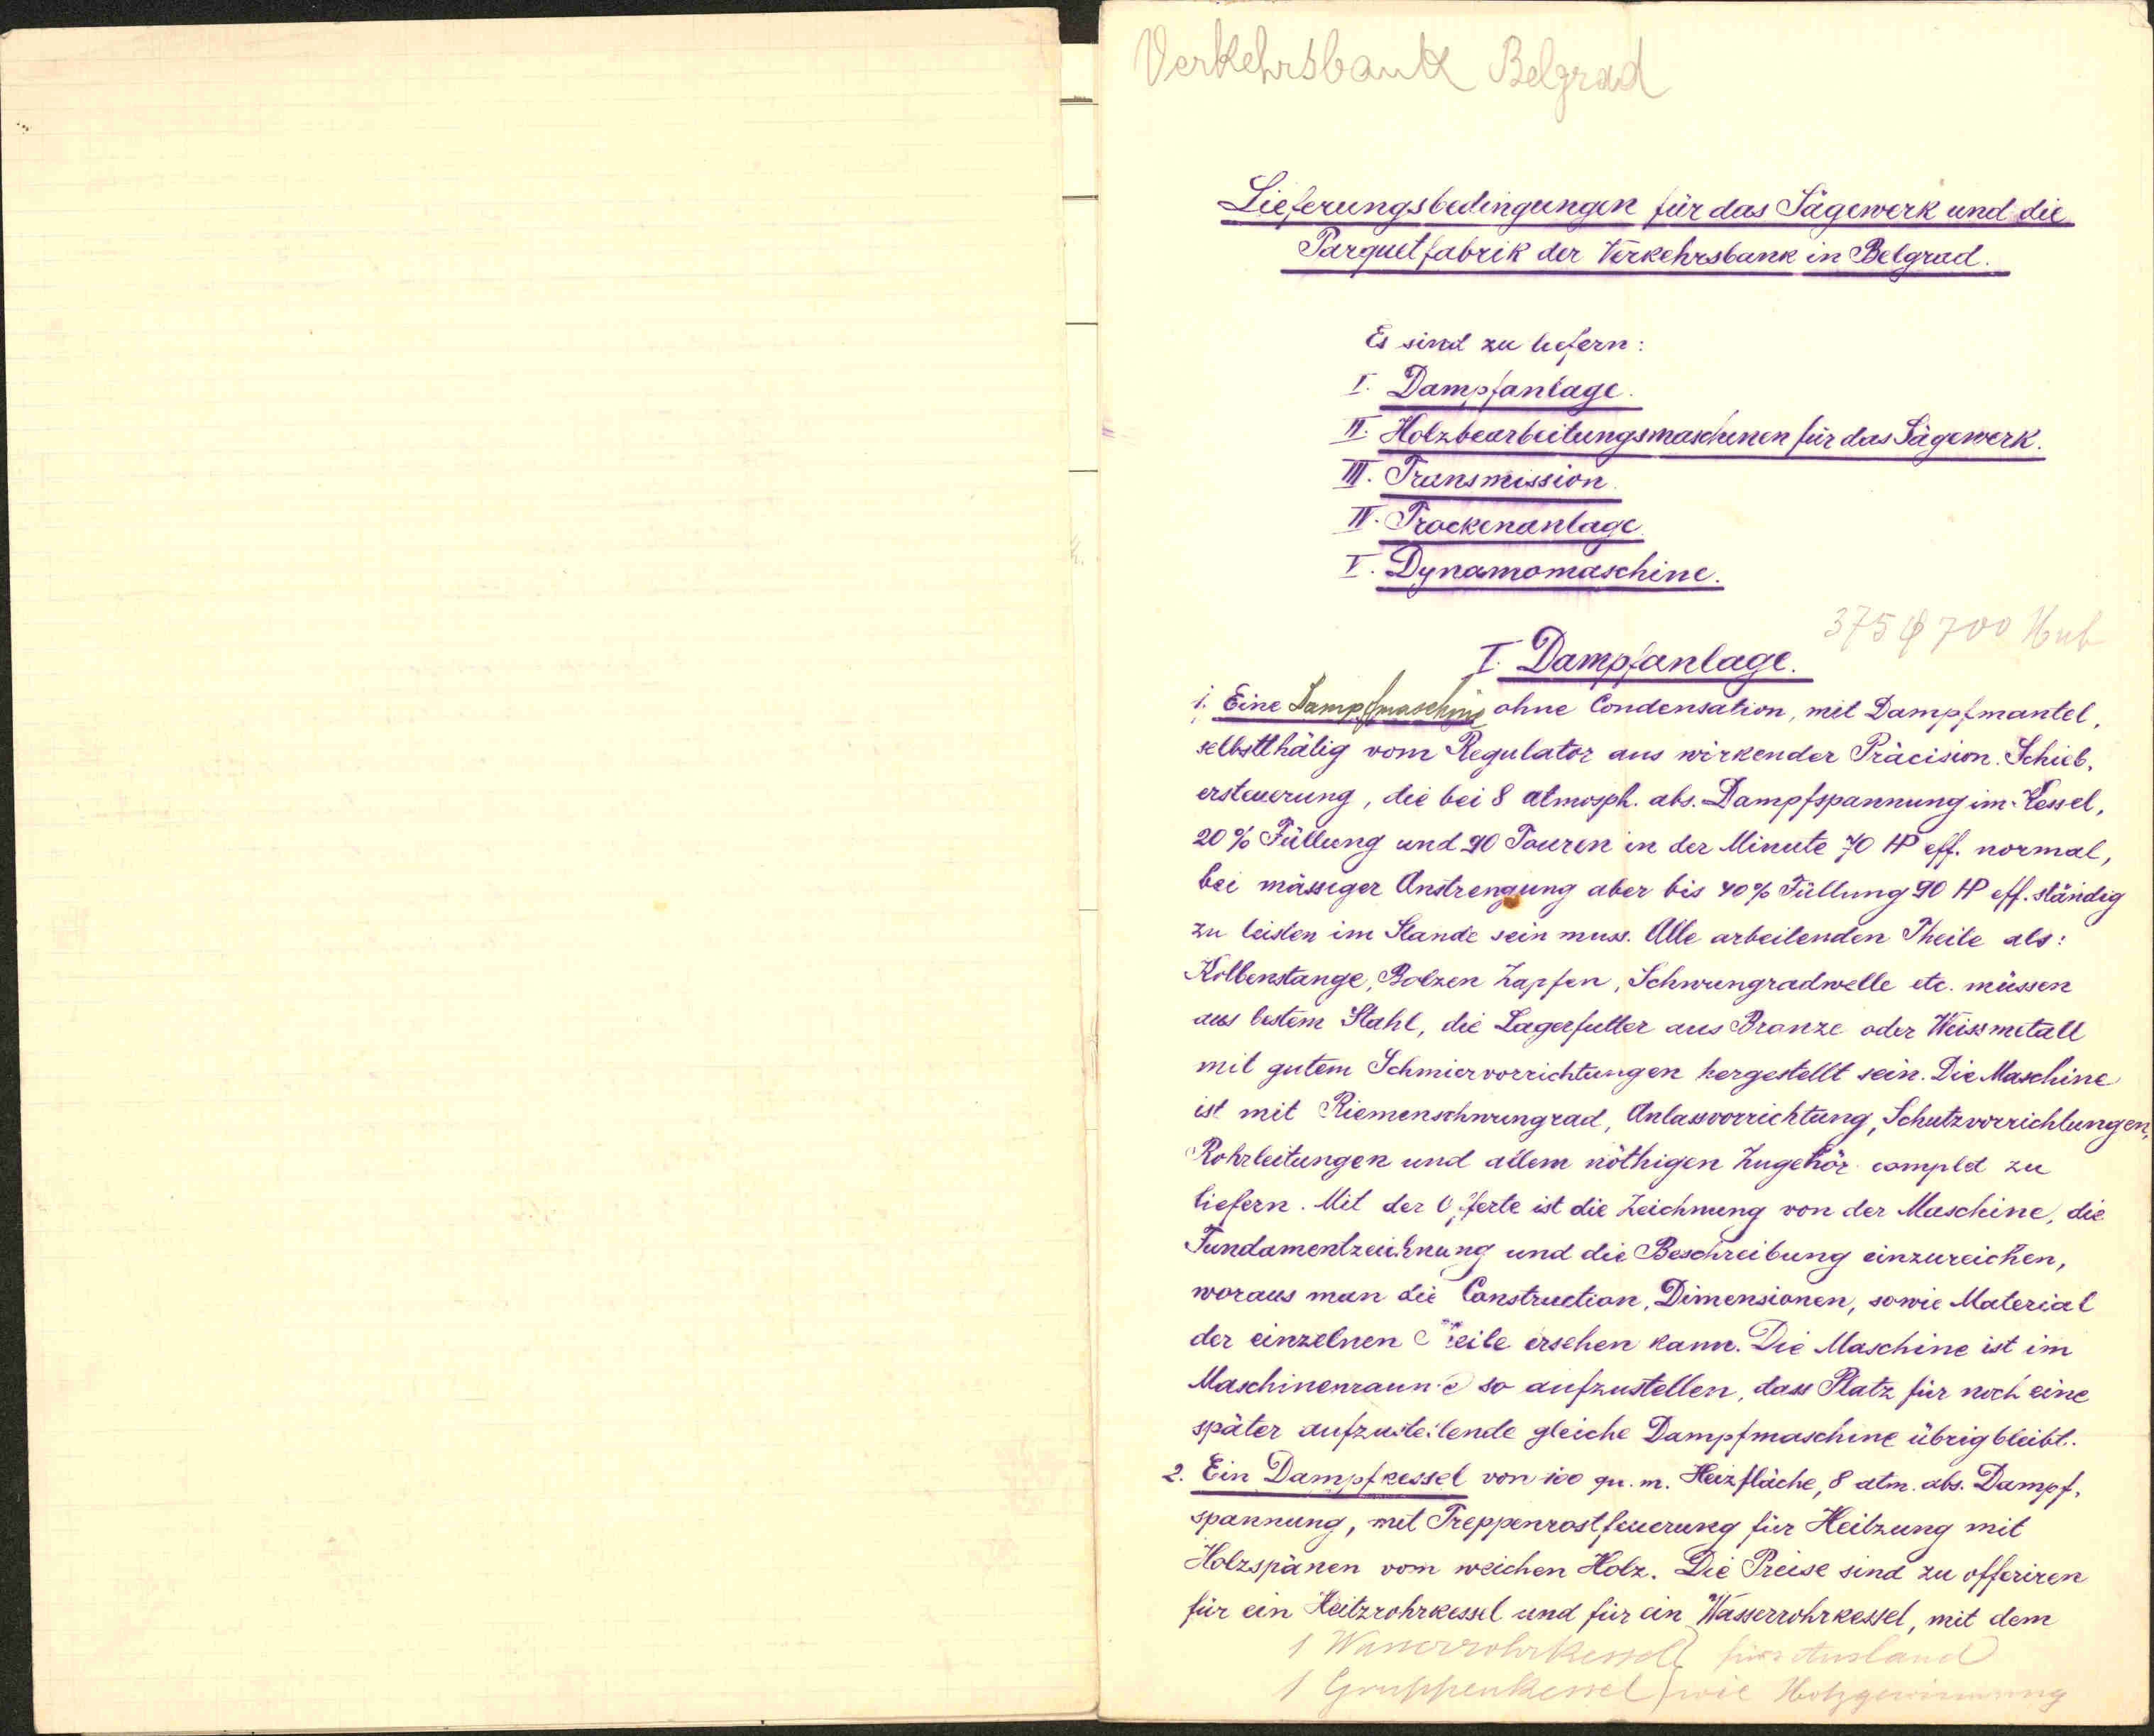 Verkehrsbank Belgrad
Lieferungsbedingungen für das Sägewerk und die
Parquetfabrik der Verkehrsbank in Belgrad.
Es sind zu liefern:
I. Dampfanlage.
II. Holzbearbeitungsmaschinen für das Sägewerk.
III. Transmission.
IV. Trockenanlage.
V. Dynamomaschine.
375 φ 700 Hub
I. Dampfanlage.
1. Eine Dampfmaschine ohne Condensation, mit Dampfmantel,
selbstthätig vom Regulator aus wirkender Präcision. Schieb.
ersteuerung, die bei 8 atmosph. abs. Dampfspannung im Kessel,
20% Füllung und 90 Touren in der Minute 70 HP eff. normal,
bei mässiger Anstrengung aber bis 40% Füllung 90 HP eff. ständig
zu leisten im Stande sein muss. Alle arbeitenden Theile als:
Kolbenstange, Bolzen Zapfen, Schwungradwelle etc. müssen
aus bestem Stahl, die Lagerfutter aus Bronze oder Weissmetall
mit gutem Schmiervorrichtungen hergestellt sein. Die Maschine
ist mit Riemenschwungrad, Anlassvorrichtung, Schutzvorrichtungen,
Rohrleitungen und allem nöthigen Zugehör complet zu
liefern. Mit der Offerte ist die Zeichnung von der Maschine, die
Fundamentzeichnung und die Beschreibung einzureichen,
woraus man die Construction, Dimensionen, sowie Material
der einzelnen Theile ersehen kann. Die Maschine ist im
Maschinenraume so aufzustellen, dass Platz für noch eine
später aufzustellende gleiche Dampfmaschine übrig bleibt.
2. Ein Dampfkessel von 100 qu. m. Heizfläche, 8 atm. abs. Dampf.
spannung, mit Treppenrostfeuerung für Heitzung mit
Holzspänen vom weichen Holz. Die Preise sind zu offeriren
für ein Heitzrohrkessel und für ein Wasserrohrkessel, mit dem
1 Wasserrohrkessel fürs Ausland
1 Gruppenkessel wie Holzgewinnung